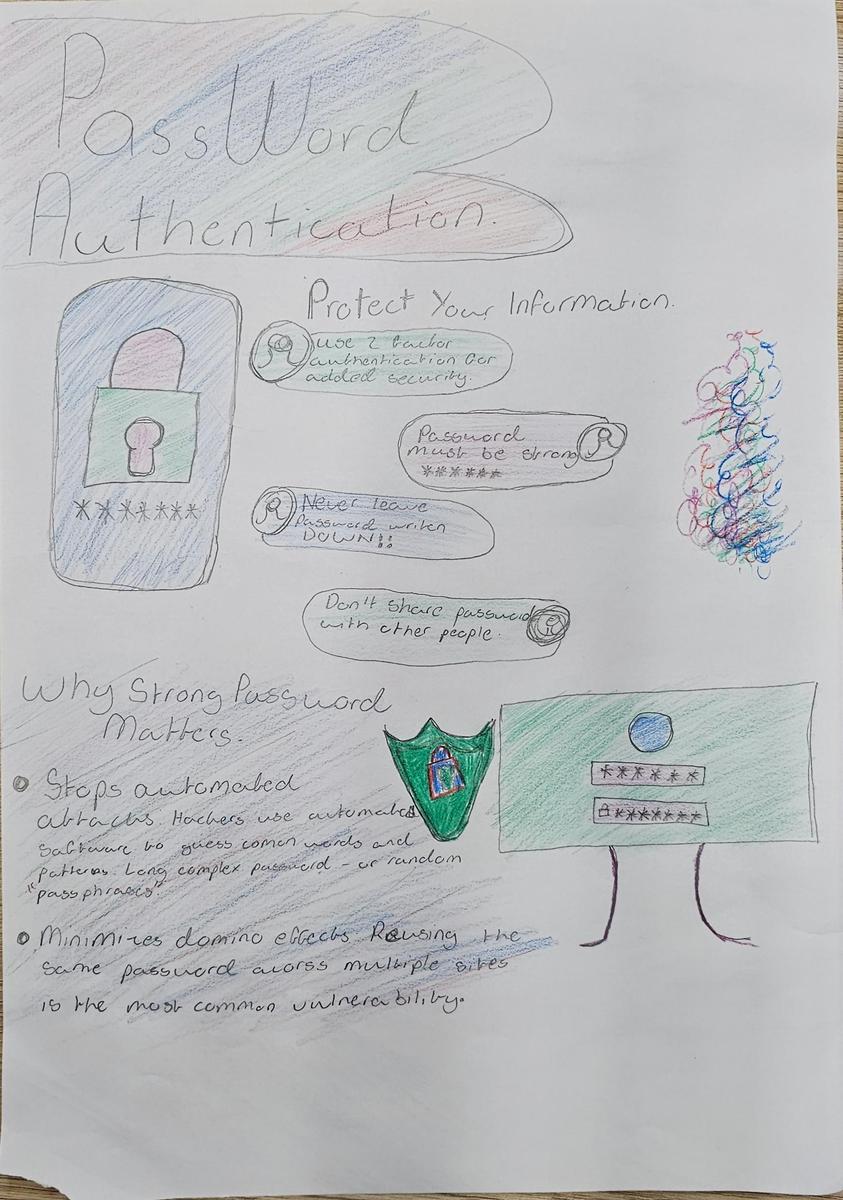 PassWord
Authentication.
Protect Your Information.
use 2 factor
authentication for
added security.
Password
must be strong
******
Never leave
Password writen
DOWN!!
*******
Don't share password
with other people.
Why Strong Password
Matters.
Stops automated
attacks. Hackers use automated
Software to guess comon words and
patterns. Long complex password - or random
"passphrases".
******
*******
Minimizes domino effects. Reusing the
same password acorss multiple sites
is the most common vulnerability.